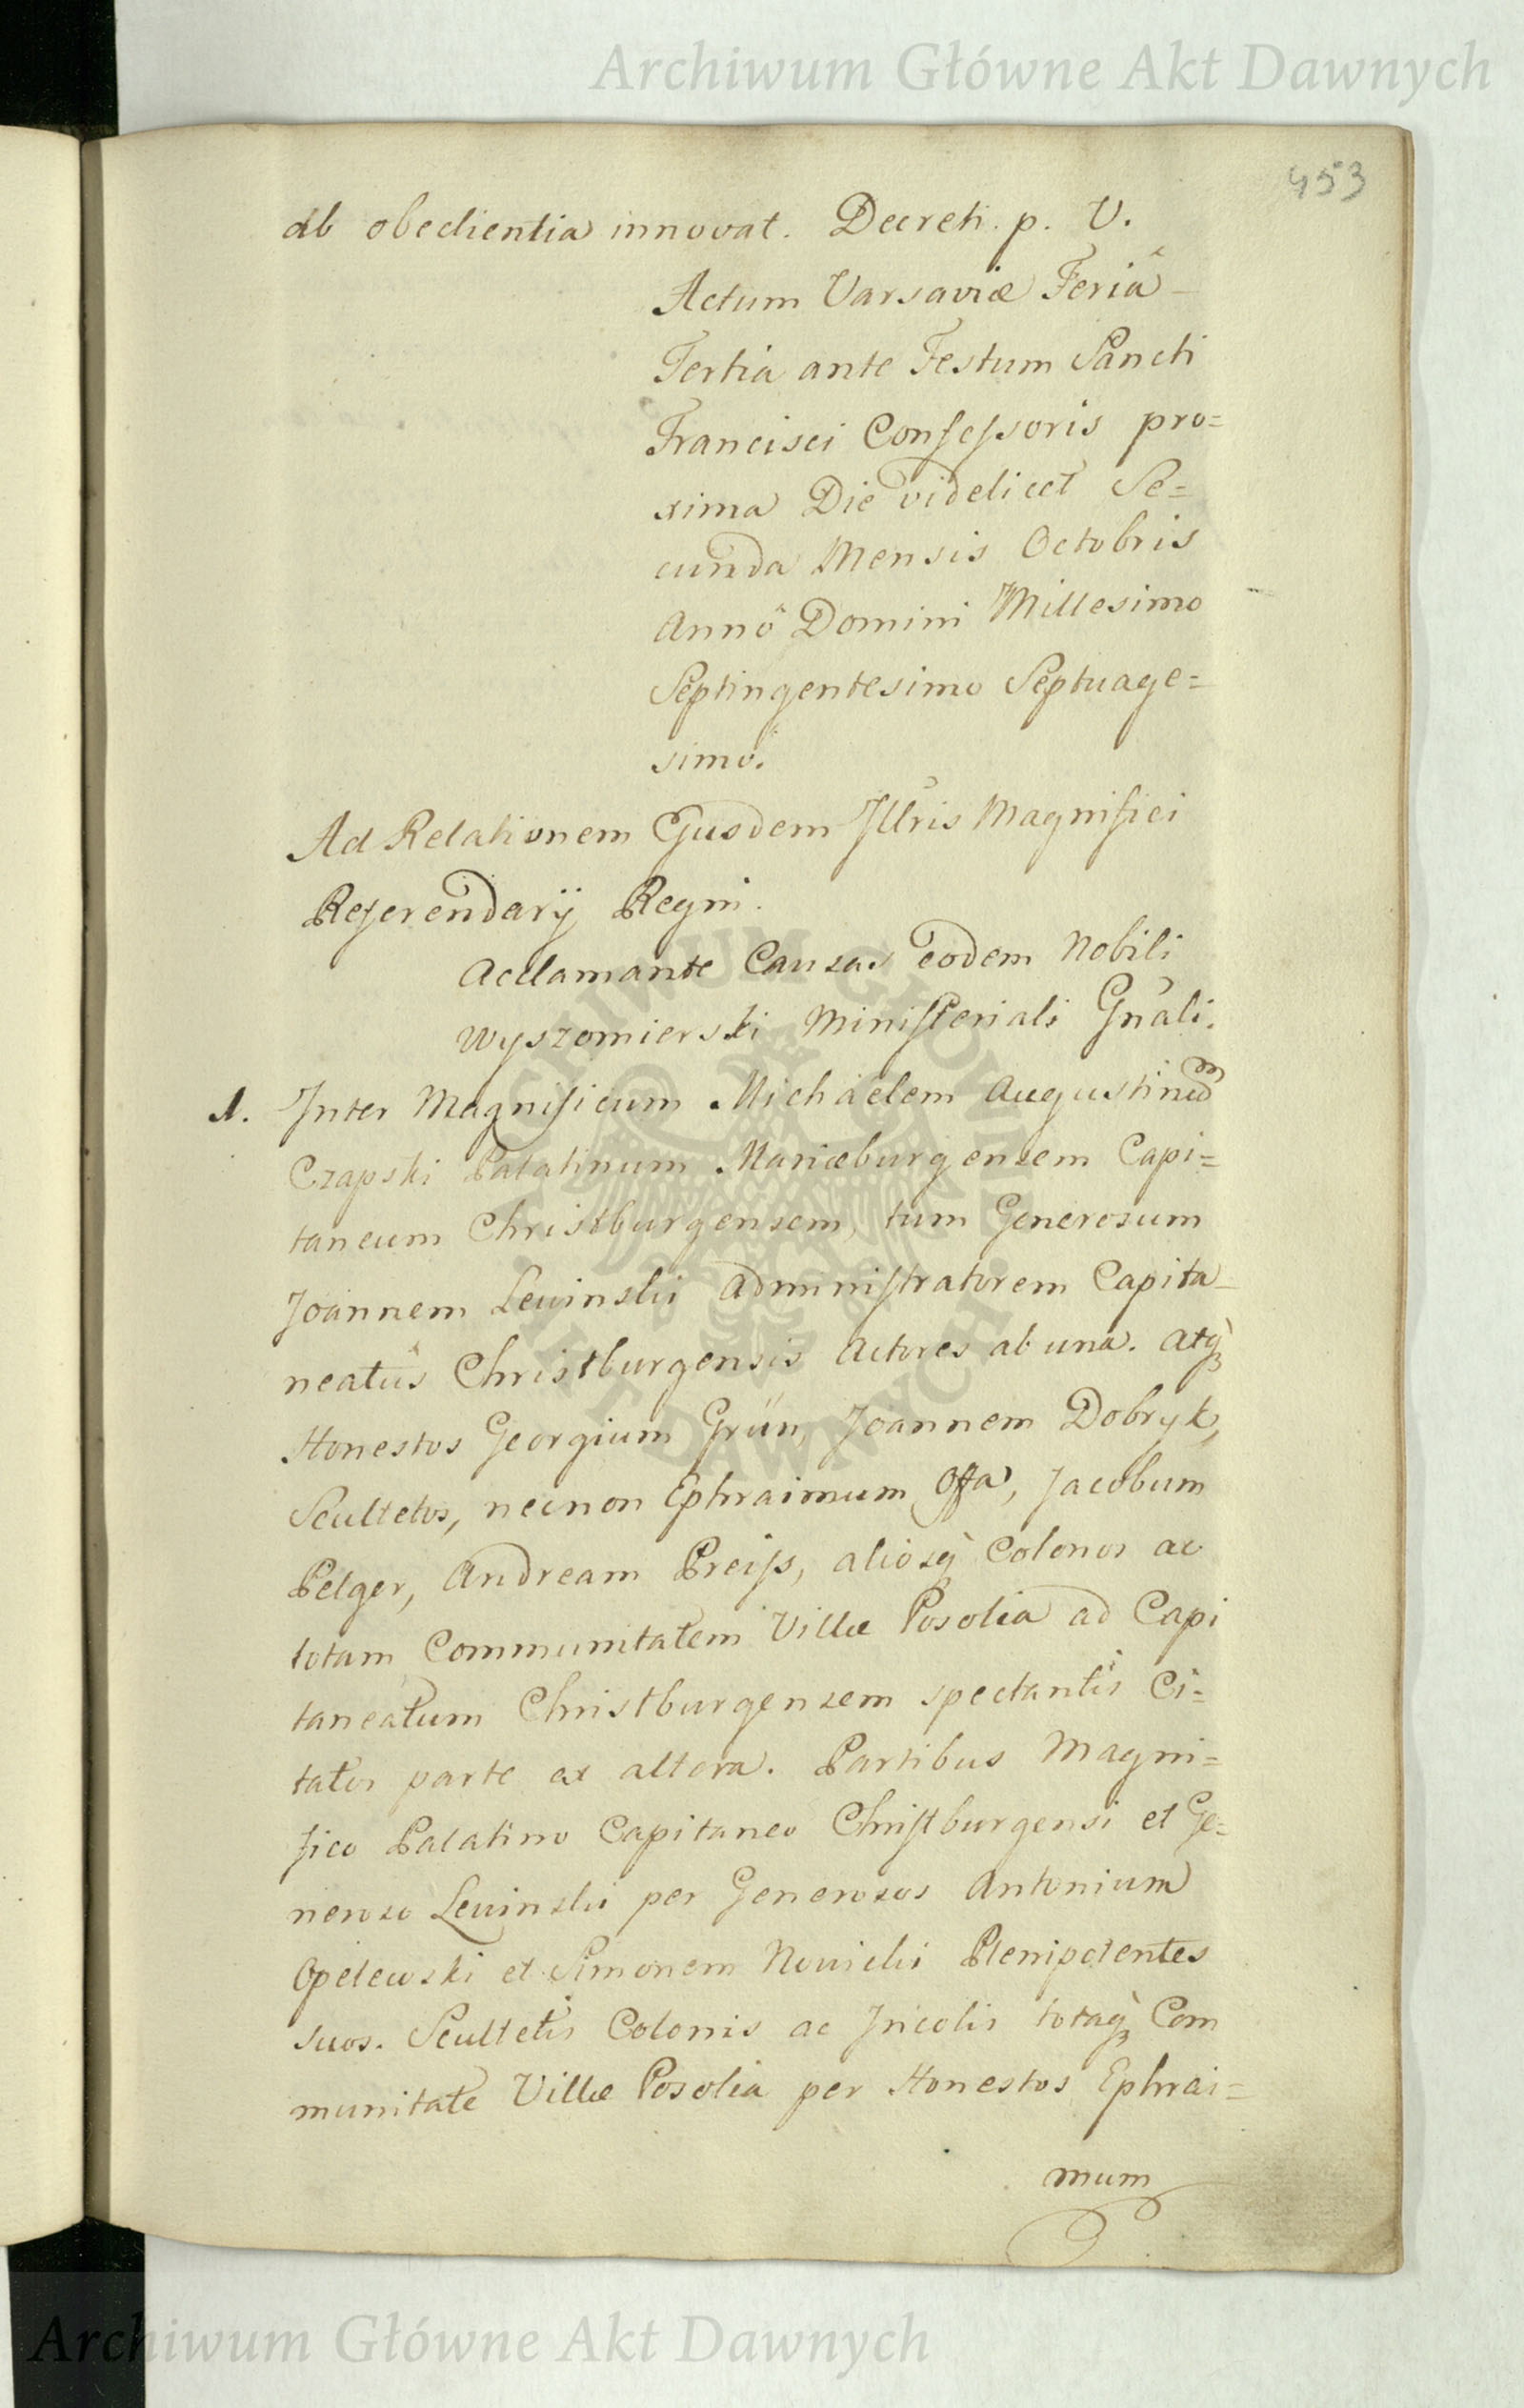 Archiwum Główne Akt Dawnych
453
ab obedientia innovat. Decreti. p. V.
Actum Varsaviæ Feriâ
Tertia ante Festum Sancti
Francisci Confessoris pro=
xima Die videlicet Se=
cunda Mensis Octobris
Annô Domini Millesimo
Septingentesimo Septuage=
simo.
Ad Relationem Ejusdem Illris Magnifici
Referendarij Regni.
Acclamante Causas eodem Nobili
Wyszomierski Ministeriali Gnali.
1. Inter Magnificum Michaelem Augustinum
Czapski Palatinum Mariæburgensem Capi=
taneum Christburgensem, tum Generosum
Joannem Lewinski Administratorem Capita
neatûs Christburgensis Actores ab una. atq
Honestos Georgium Grün, Joannem Dobryk,
Scultetos, necnon Ephraimum Offa, Jacobum
Pelger, Andream Preiss, aliosq Colonos ac
totam Communitatem Villæ Posolia ad Capi
taneatum Christburgensem spectantis Ci=
tatos parte ex altera. Partibus Magni=
fico Palatino Capitaneo Christburgensi et Ge=
neroso Lewinski per Generosos Antonium
Opelewski et Simonem Nowicki Plenipotentes
suos. Scultetis Colonis ac Incolis totaq Com
munitate Villæ Posolia per Honestos Ephrai=
mum
ARCHIWUM GŁÓWNE AKT DAWNYCH
Archiwum Główne Akt Dawnych